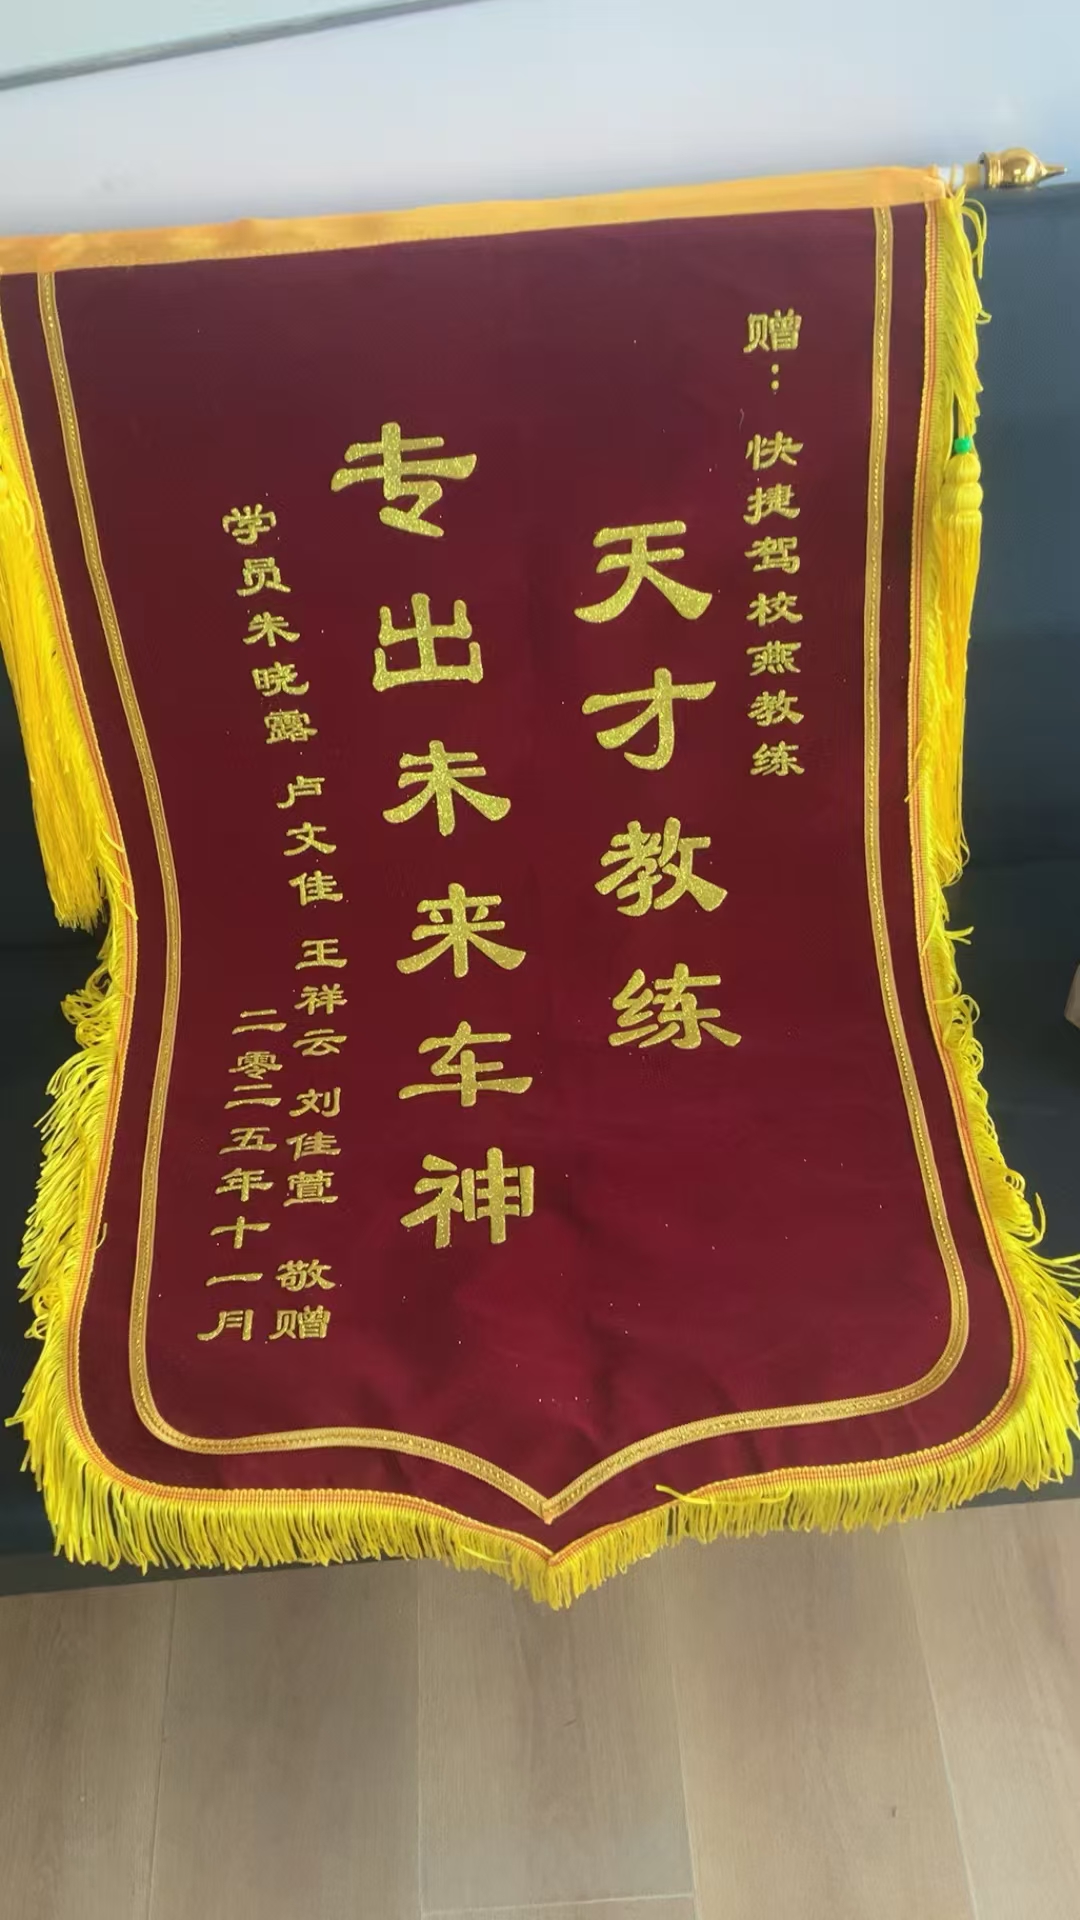 赠：快捷驾校燕教练
天才教练
专出未来车神
学员朱晓露 卢文佳 王祥云 刘佳萱 敬赠
二零二五年十一月